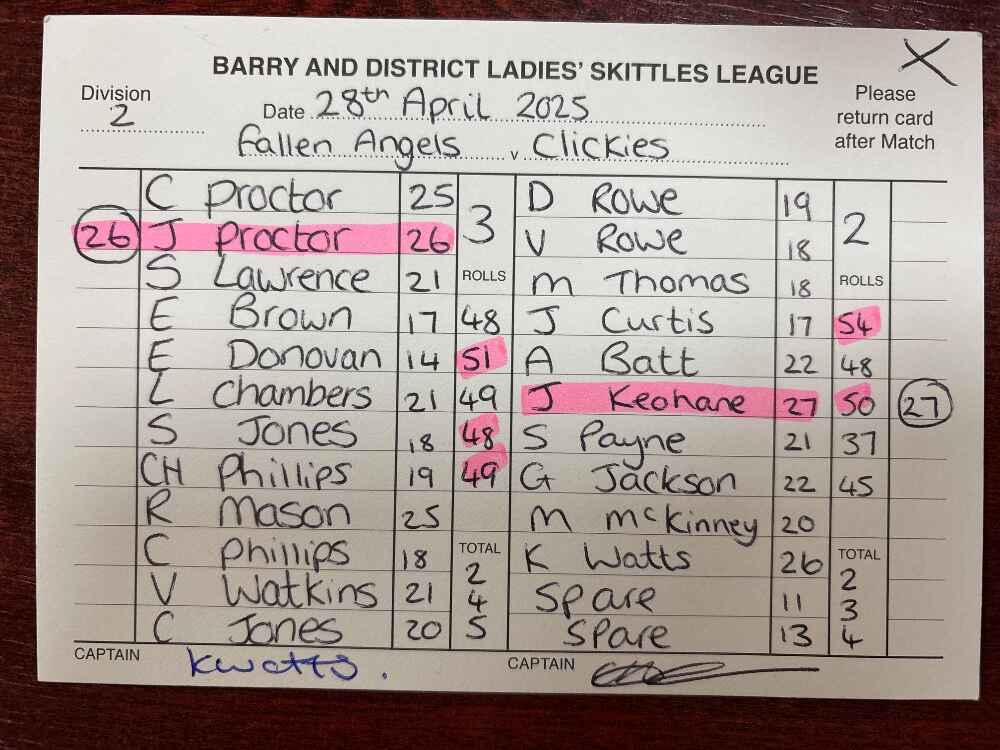 BARRY AND DISTRICT LADIES' SKITTLES LEAGUE
Division 2
Date 28th April 2025
Please return card after Match
Fallen Angels v Clickies
C Proctor 25 3 D Rowe 19 2
26 J Proctor 26 V Rowe 18
S Lawrence 21 ROLLS M Thomas 18 ROLLS
E Brown 17 48 J Curtis 17 54
E Donovan 14 51 A Batt 22 48
L Chambers 21 49 J Keohane 27 50 27
S Jones 18 48 S Payne 21 37
CH Phillips 19 49 G Jackson 22 45
R Mason 25 M McKinney 20
C Phillips 18 TOTAL K Watts 26 TOTAL
2 2
V Watkins 21 4 Spare 11 3
C Jones 20 5 Spare 13 4
CAPTAIN kwatts. CAPTAIN